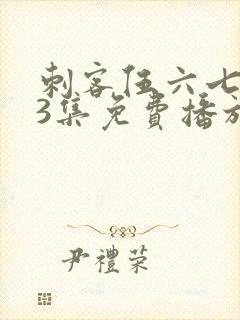 刺客伍六七
3集免費播放
尹禮荣